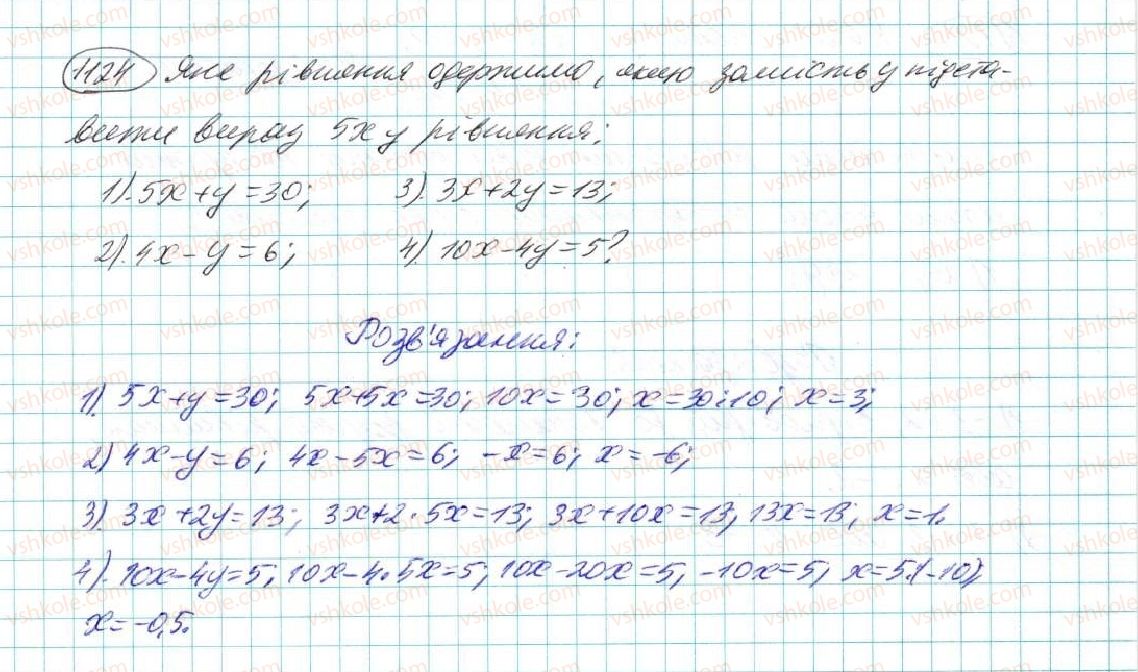 1124 Яке рівняння одержимо, якщо замість y підста-
вити вираз 5x у рівняння:
1). 5x+y=30; 3). 3x+2y=13;
2). 4x-y=6; 4). 10x-4y=5?
Розв'язання:
1) 5x+y=30; 5x+5x=30; 10x=30; x=30:10; x=3;
2) 4x-y=6; 4x-5x=6; -x=6; x=-6;
3) 3x+2y=13; 3x+2·5x=13; 3x+10x=13; 13x=13; x=1.
4). 10x-4y=5; 10x-4·5x=5; 10x-20x=5; -10x=5; x=5:(-10);
x=-0,5.